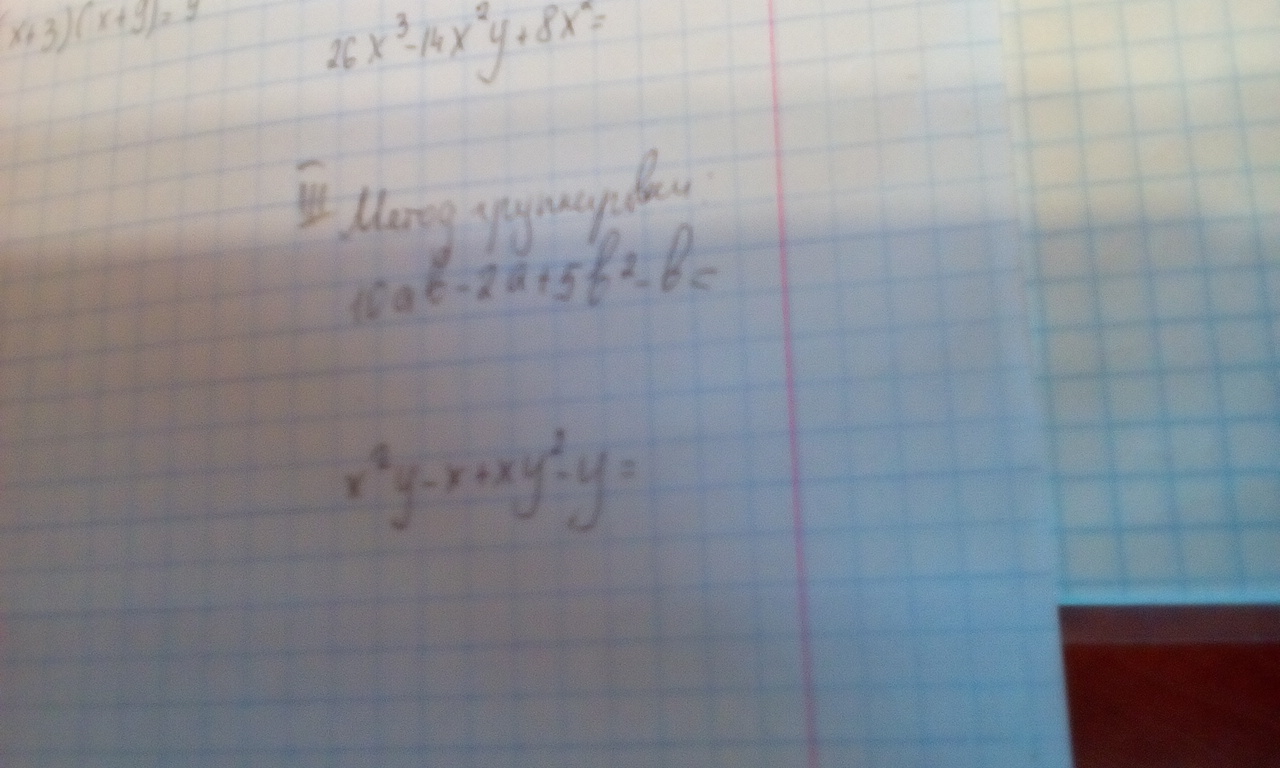 (x+3)(x+y)=y
26x³-14x²y+8x²=
III Метод группировки:
10ab-2a+5b²-b=
x²y-x+xy²-y=